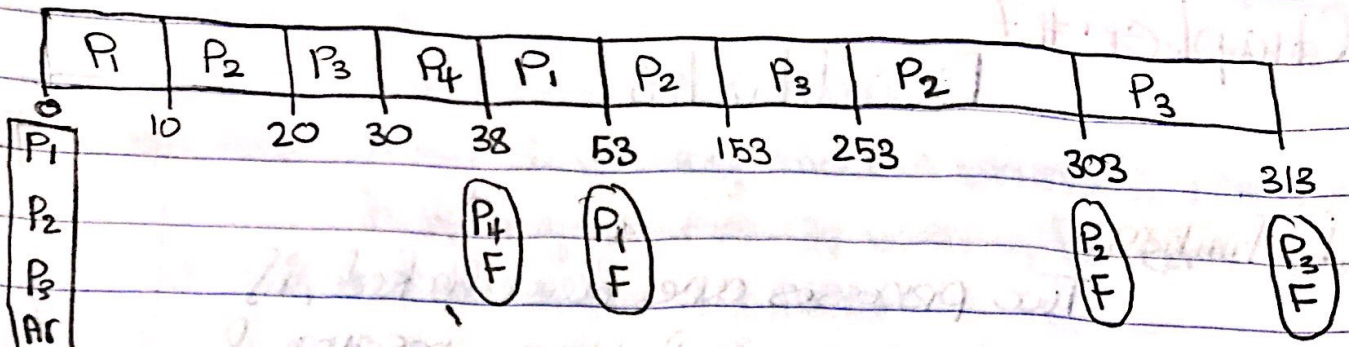 P₁ P₂ P₃ P₄ P₁ P₂ P₃ P₂ P₃
0 10 20 30 38 53 153 253 303 313
P₁
P₂ P₄ P₁ P₂ P₃
P₃ F F F F
Ar